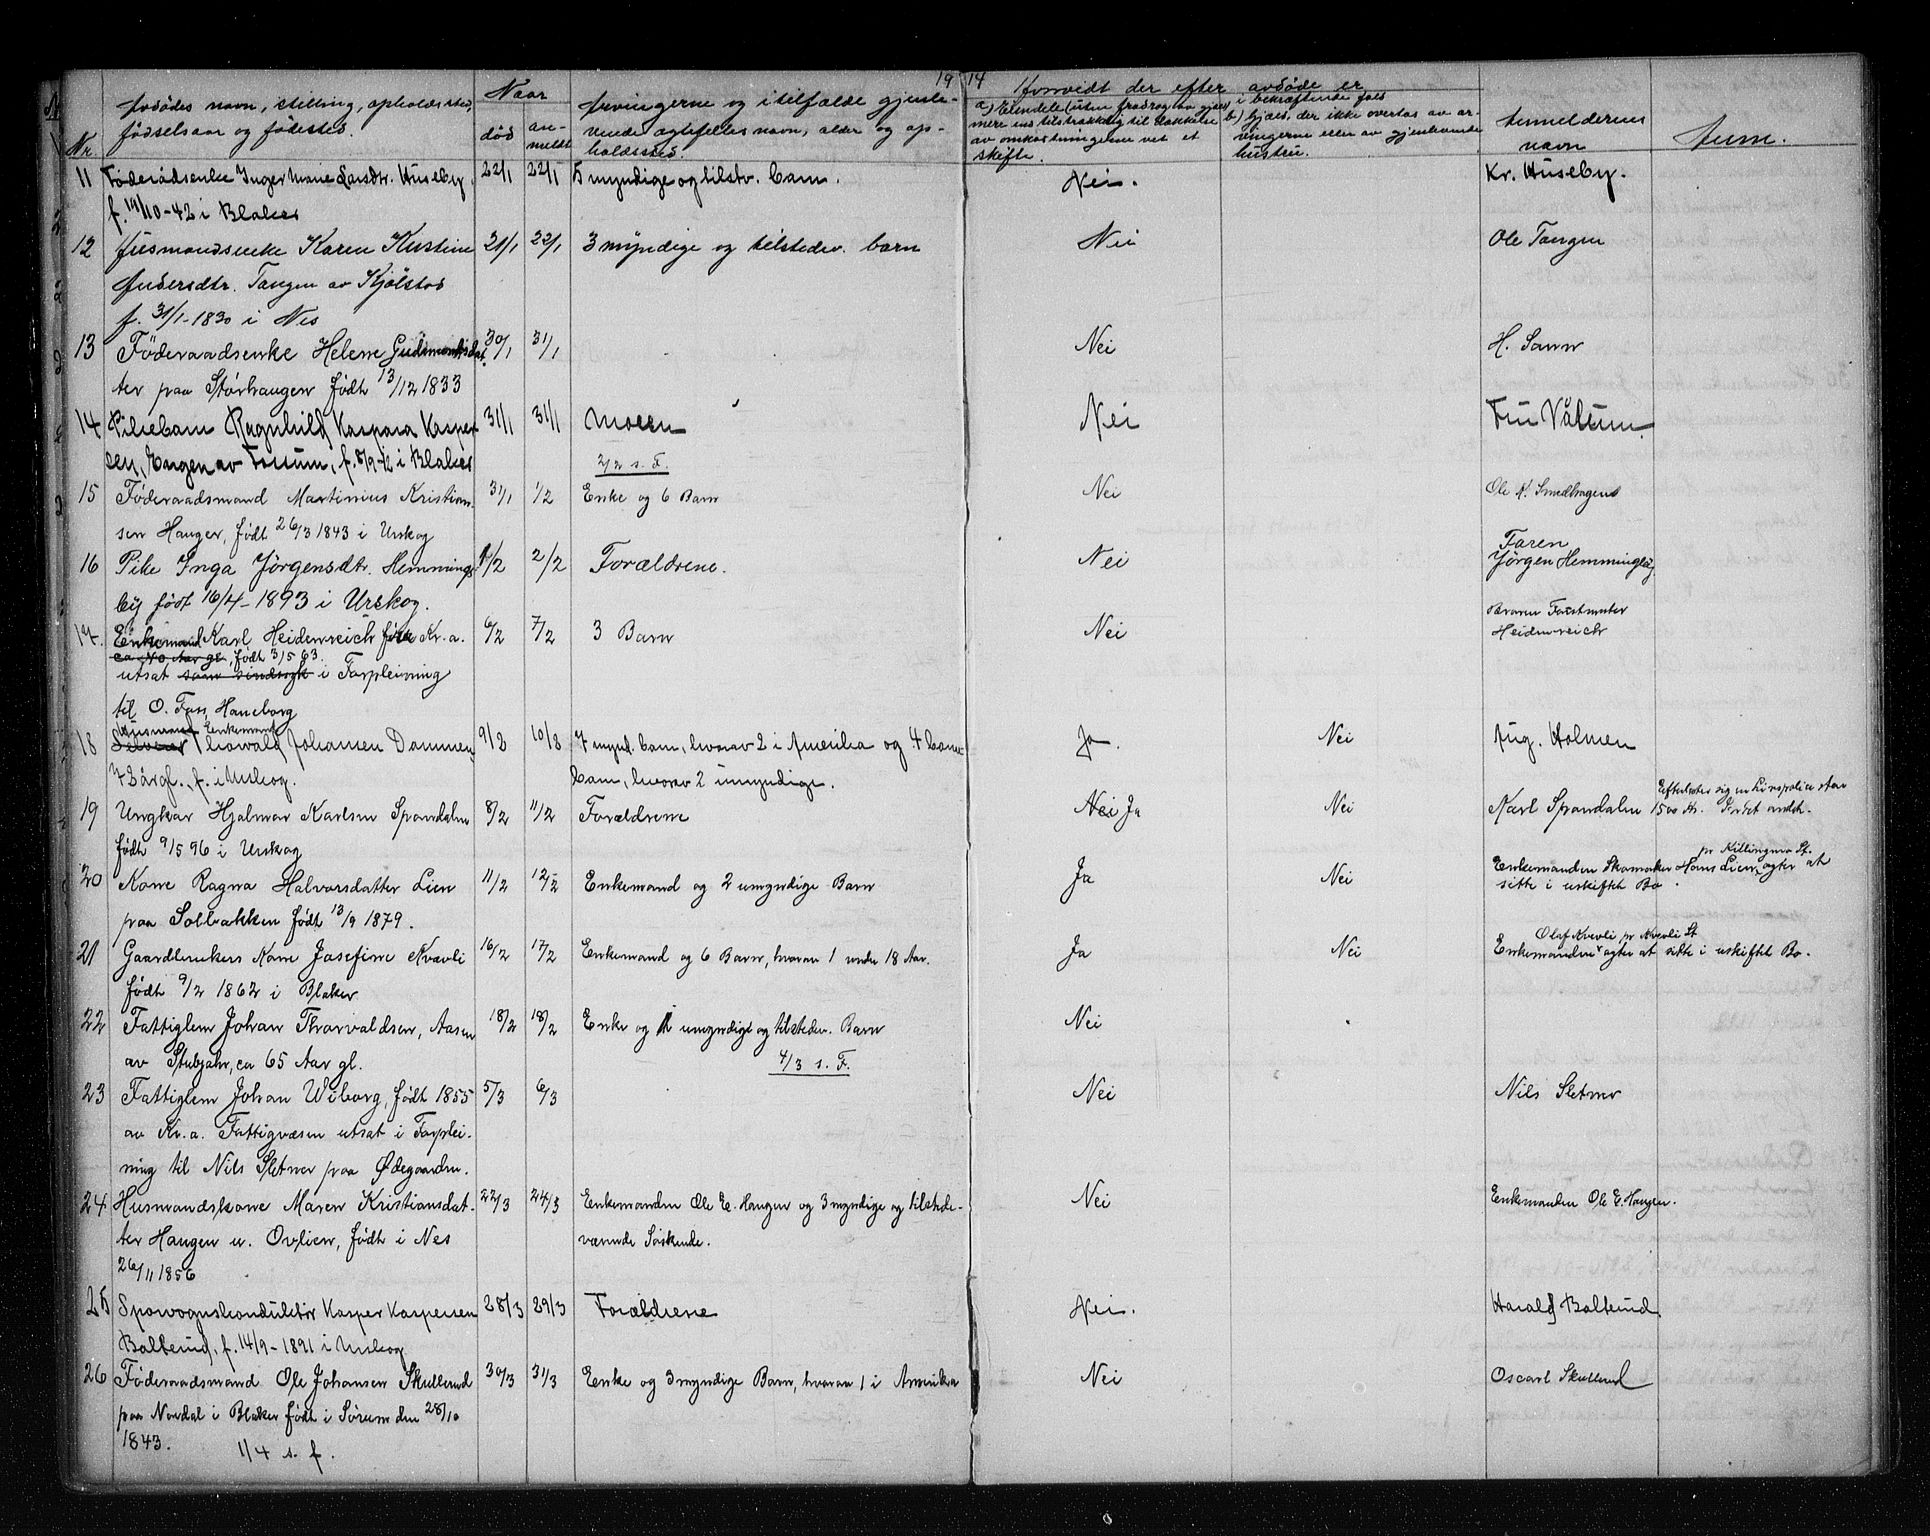 19 14
Nr.
Avdødes navn, stilling, opholdssted,
fødselsaar og fødested.
Naar
død
an-
meldt
Arvingerne og i tilfælde gjenle-
vende ægtefælles navn, alder og op-
holdssted.
Hvorvidt der efter avdøde er
a) Eiendele (uten fradrag av gjæld)
mere end tilstrækkelig til dækkelse
av omkostningerne ved et
skifte.
i bekræftende fald
b) gjæld, der ikke overtas av ar-
vingerne eller av gjenlevende
hustru.
Anmelderens
navn
Anm.
11 Føderådsenke Inger Marie Larsdtr. Huseby, 22/1 22/1 5 myndige og tilstv. barn. Nei. Kr. Huseby.
f. 19/10-42 i Blaker
12 Husmandsenke Karen Kristine 21/1 22/1 3 myndige og tilstedev. barn Nei Ole Tangen
Andersdtr. Tangen av Kjølstad
f. 31/1-1830 i Nes
13 Føderaadsenke Helene Gudmundsdat- 30/1 31/1 Nei H. Sann
ter paa Storhaugen født 13/12 1833
14 Pikebarn Ragnhild Kaspara Kasper- 31/1 31/1 Moren Nei Fru Våltun.
sen, Engen av Fossum, f. 8/9-12 i Blaker
2/2 s. F.
15 Føderaadsmand Martinius Kristian- 31/1 1/2 Enke og 6 Barn Nei Ole K. Smedhagen
sen Hauger, født 26/3 1843 i Urskog
16 Pike Inga Jørgensdtr. Hemmings- 1/2 2/2 Forældrene. Nei Faren
Jørgen Hemmingby.
by født 16/4-1893 i Urskog.
17. Enkemand Karl Heidenreich fra Kr.a. 6/2 7/2 3 Barn Nei Broren Forstmester
Heidenreich
ca 40 Aar gl., født 3/5 63.
utsat som sindssyk i Forpleining
til O. Foss, Haneborg
Husmand Enkemand
18 Selveier Thorvald Johansen Dammen, 9/2 10/2 7 mynd. barn, hvorav 2 i Amerika og 4 barne- Ja. Nei Aug. Holmen
73 årgl., f. i Urskog. barn, hvorav 2 umyndige.
19 Ungkar Hjalmar Karlsen Spondalen 8/2 11/2 Forældrene Nei Ja Nei Karl Spondalen
Efterlater sig en Livspolice stor
1500 Kr. Intet andet.
født 9/5 96 i Urskog
20 Kone Ragna Halvorsdatter Lien 11/2 12/2 Enkemand og 2 umyndige Barn Ja Nei Enkemanden Skomaker Hans Lien, agter at
pr Killingmo St.
sitte i uskiftet Bo.
paa Solbakken født 13/9 1879.
21 Gaardbrukers Kone Josefine Kvevli 16/2 17/2 Enkemand og 6 Barn, hvorav 1 under 18 Aar. Ja Nei
Olaf Kvevli pr Kvevli St
Enkemanden agter at sitte i uskiftet Bo.
født 9/2 1862 i Blaker
22 Fattiglem Johan Thorvaldsen, Aasen 18/2 18/2 Enke og umyndige og tilstedev. Barn Nei
av Stubjahr, ca 65 Aar gl.
4/3 s. F.
23 Fattiglem Johan Wiborg, født 1855 5/3 6/3 Nei Nils Sletner
av Kr.a. Fattigvæsen utsat i Forplei-
ning til Nils Sletner paa Ødegaarden.
24 Husmandskone Maren Kristiansdat- 22/3 24/3 Enkemanden Ole E. Haugen og 3 myndige og tilstede- Nei Enkemanden Ole E. Haugen.
ter Haugen u. Ovlien, født i Nes værende Søskende.
26/11 1856
25 Sporvognskonduktør Kasper Kaspersen 28/3 29/3 Forældrene Nei. Harald Bolterud
Bolterud, f. 14/9-1891 i Urskog
26 Føderaadsmand Ole Johansen Skullerud 30/3 31/3 Enke og 3 myndige Barn, hvorav 1 i Amerika Nei Oscarl Skullerud
paa Nordal i Blaker født i Sørum den 28/10
1843.
1/4 s. f.